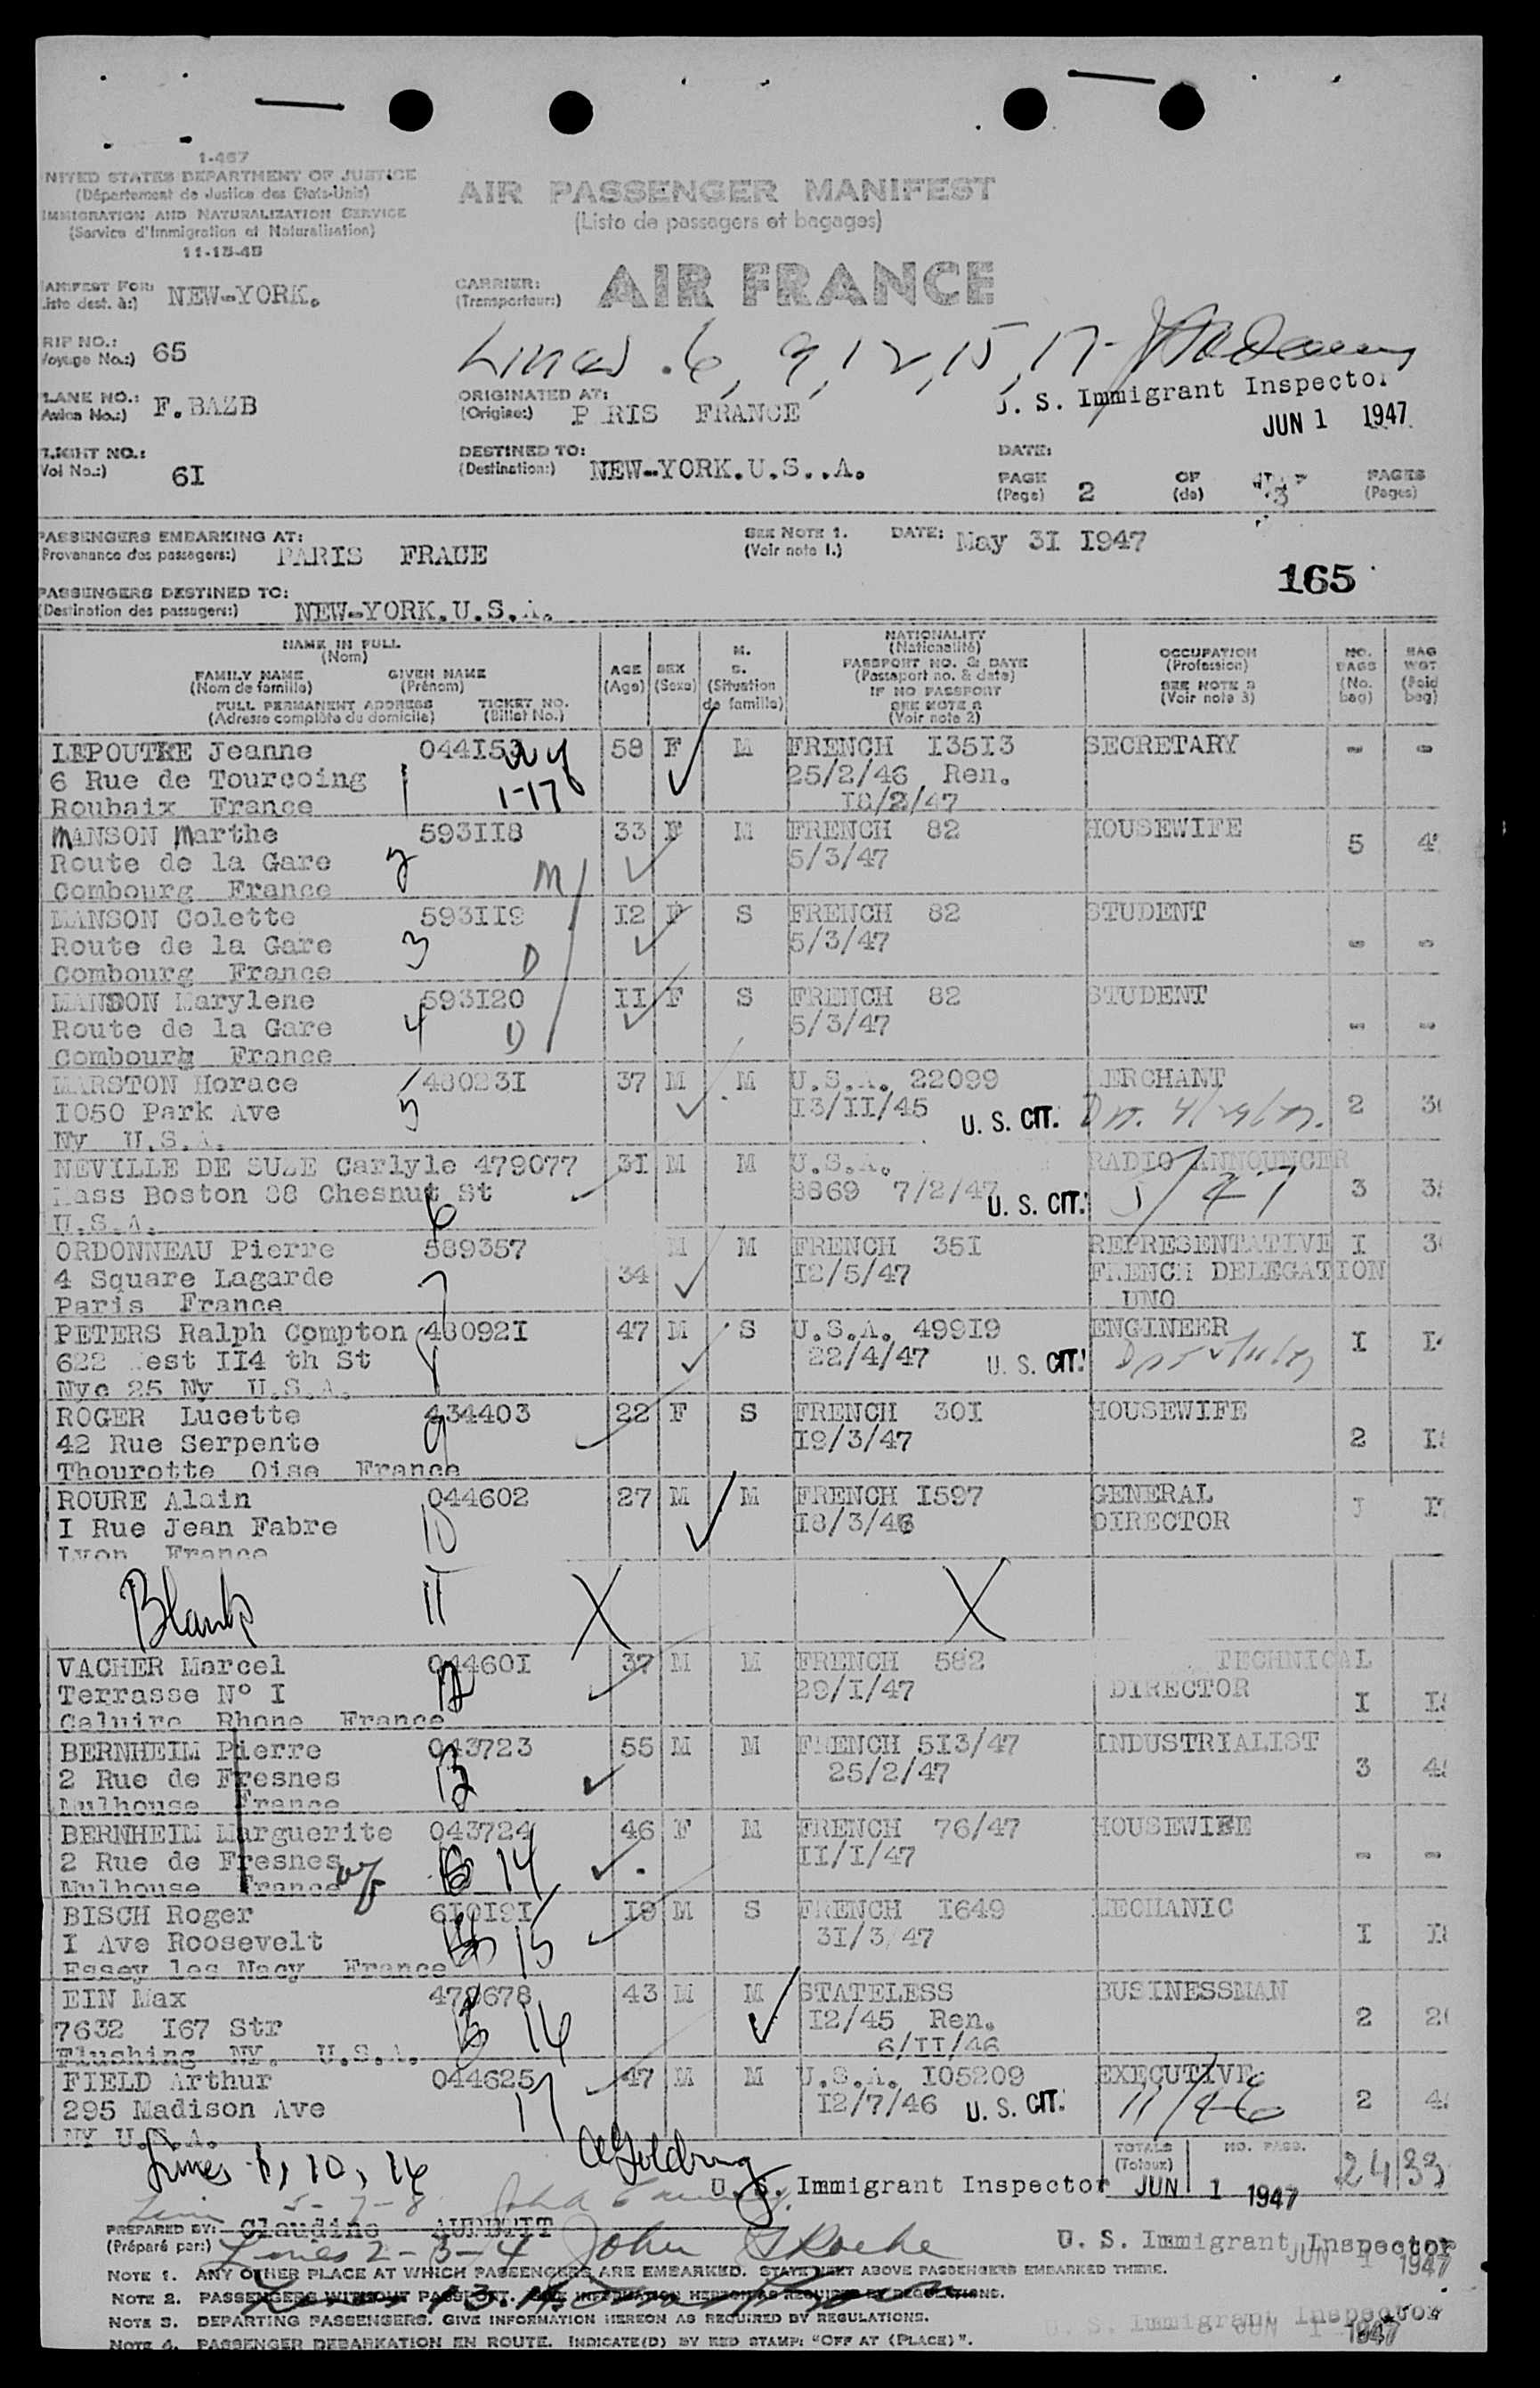 1-467
NITED STATES DEPARTMENT OF JUSTICE
(Département de Justice des Etats-Unis)
IMMIGRATION AND NATURALIZATION SERVICE
(Service d'Immigration et Naturalisation)
11-15-45
AIR PASSENGER MANIFEST
(Liste de passagers et bagages)
ANIFEST FOR: NEW-YORK.
iste dest. à:)
CARRIER: AIR FRANCE
(Transporteur:)
RIP NO.: 65
Voyage No.:)
Lines 6, 9, 12, 15, 17-
LANE NO.: F.BAZB
Avion No.:)
ORIGINATED AT: P RIS FRANCE
(Origine:)
U. S. Immigrant Inspector
JUN 1 1947
LIGHT NO.: 6I
Vol No.:)
DESTINED TO: NEW-YORK.U.S..A.
(Destination:)
DATE:
PAGE 2 OF 3 PAGES
(Page) (de) (Pages)
PASSENGERS EMBARKING AT: PARIS FRACE
(Provenance des passagers:)
SEE NOTE 1. DATE: May 3I I947
(Voir note 1.)
165
PASSENGERS DESTINED TO: NEW-YORK.U.S.A.
(Destination des passagers:)
NAME IN FULL
(Nom)
FAMILY NAME GIVEN NAME
(Nom de famille) (Prénom)
FULL PERMANENT ADDRESS TICKET NO.
(Adresse complète du domicile) (Billet No.)
AGE
(Age)
SEX
(Sexe)
M.
S.
(Situation
de famille)
NATIONALITY
(Nationalité)
PASSPORT NO. & DATE
(Passaport no. & date)
IF NO PASSPORT
SEE NOTE 2
(Voir note 2)
OCCUPATION
(Profession)
SEE NOTE 3
(Voir note 3)
NO.
BAGS
(No.
bag)
BAG
WGT
(Poid
bag)
LEPOUTKE Jeanne 044I53 58 F M FRENCH I35I3 SECRETARY - -
6 Rue de Tourcoing 1 25/2/46 Ren.
1-17
Roubaix France I8/2/47
MANSON Marthe 593II8 33 F M FRENCH 82 HOUSEWIFE 5
Route de la Gare 2 5/3/47
Combourg France M
MANSON Colette 593II9 I2 F S FRENCH 82 STUDENT - -
Route de la Gare 3 D 5/3/47
Combourg France
MANSON Marylene 593I20 II F S FRENCH 82 STUDENT - -
Route de la Gare 4 D 5/3/47
Combourg France
MARSTON Horace 48023I 37 M M U.S.A. 22099 MERCHANT 2
I050 Park Ave 5 I3/II/45 U. S. CIT.
Ny U.S.A.
NEVILLE DE SUZE Carlyle 479077 3I M M U.S.A. RADIO ANNOUNCER 3
Mass Boston 88 Chesnut St 6 8869 7/2/47 U. S. CIT.
U.S.A.
ORDONNEAU Pierre 589357 M M FRENCH 35I REPRESENTATIVE I
4 Square Lagarde 7 34 I2/5/47 FRENCH DELEGATION
Paris France UNO
PETERS Ralph Compton 48092I 47 M S U.S.A. 499I9 ENGINEER I
622 West II4 th St 22/4/47 U. S. CIT.
Nyc 25 Ny U.S.A.
ROGER Lucette 434403 22 F S FRENCH 30I HOUSEWIFE 2
42 Rue Serpente 9 I9/3/47
Thourotte Oise France
ROURE Alain 044602 27 M M FRENCH I597 GENERAL
I Rue Jean Fabre 10 I8/3/46 DIRECTOR
Lyon France
Blank 11 X X
VACHER Marcel 04460I 37 M M FRENCH 582 TECHNICAL
Terrasse N° I 12 29/I/47 DIRECTOR I
Caluire Rhone France
BERNHEIM Pierre 043723 55 M M FRENCH 5I3/47 INDUSTRIALIST 3
2 Rue de Fresnes 13 25/2/47
Mulhouse France
BERNHEIM Marguerite 043724 46 F M FRENCH 76/47 HOUSEWIFE - -
2 Rue de Fresnes 14 II/I/47
Mulhouse France wf
BISCH Roger 6I0I9I I9 M S FRENCH I649 MECHANIC I
I Ave Roosevelt 15 3I/3/47
Essey les Nacy France
EIN Max 479678 43 M M STATELESS BUSINESSMAN 2
7632 I67 Str 16 I2/45 Ren.
Flushing NY. U.S.A. 6/II/46
FIELD Arthur 044625 47 M M U.S.A. I05209 EXECUTIVE 2
295 Madison Ave 17 I2/7/46 U. S. CIT. 11/26
NY U.S.A.
Lines 1, 10, 16
U. S. Immigrant Inspector
TOTALS NO. PASS.
(Totaux)
JUN 1 1947
24 33
Line 5-7-8
PREPARED BY: Claudine
(Préparé par:)
Lines 2-3-4 John Roche
U. S. Immigrant Inspector
JUN 1 1947
NOTE 1. ANY OTHER PLACE AT WHICH PASSENGERS ARE EMBARKED. STATE NEXT ABOVE PASSENGERS EMBARKED THERE.
NOTE 2. PASSENGERS WITHOUT PASSPORT. GIVE INFORMATION HEREON AS REQUIRED BY REGULATIONS.
NOTE 3. DEPARTING PASSENGERS. GIVE INFORMATION HEREON AS REQUIRED BY REGULATIONS.
U. S. Immigrant Inspector
JUN 1 1947
NOTE 4. PASSENGER DEBARKATION EN ROUTE. INDICATE(D) BY RED STAMP: "OFF AT (PLACE)".